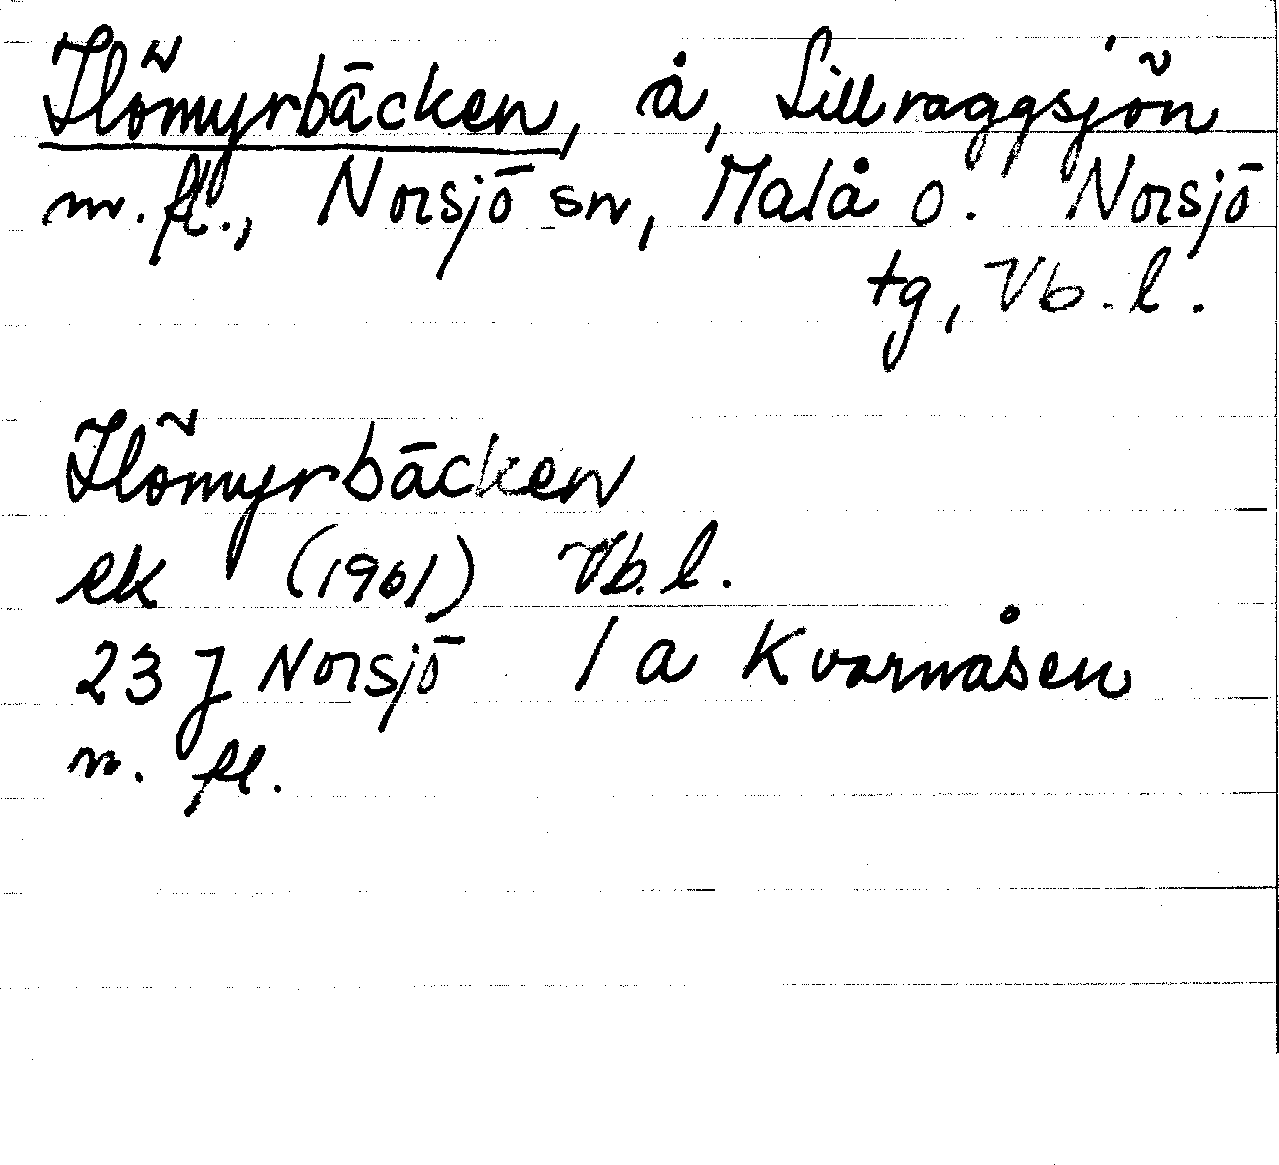 Ilömyrbäcken, å, Lillraggsjön
m.fl., Norsjö sn, Malå o. Norsjö
tg, Vb.l.
Ilömyrbäcken
ek (1961) Vb.l.
23 J Norsjö 1 a Kvarnåsen
m. fl.